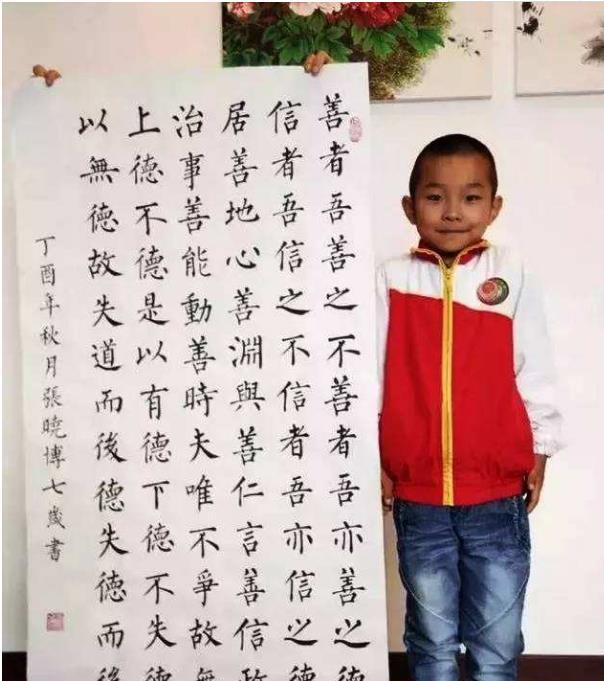 善者吾善之不善者吾亦善之德
信者吾信之不信者吾亦信之德
居善地心善淵與善仁言善信政
治事善能動善時夫唯不爭故無
上德不德是以有德下德不失德
以無德故失道而後德失德而後
丁酉年秋月張曉博七歲書